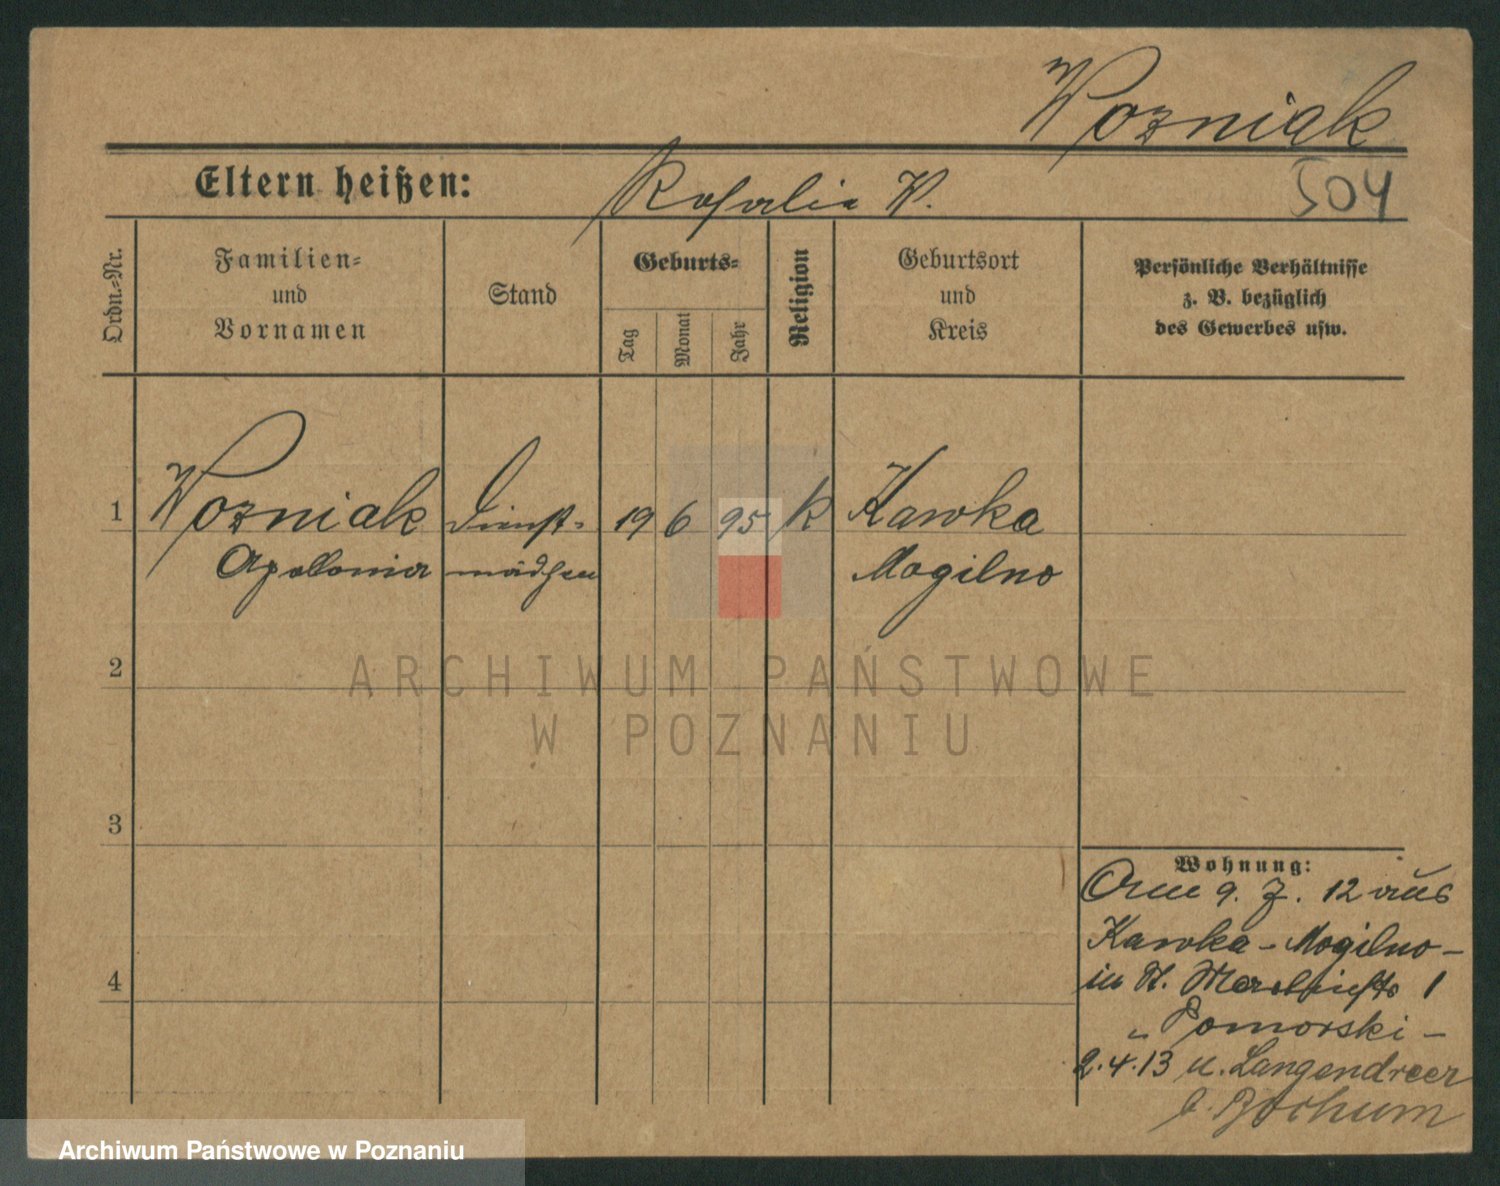 Wozniak
Eltern heißen: Rosalie W. 504
Ordn.-Nr.
Familien-
und
Vornamen
Stand
Geburts-
Tag
Monat
Jahr
Religion
Geburtsort
und
Kreis
Persönliche Verhältnisse
z. B. bezüglich
des Gewerbes usw.
1 Wozniak Dienst- 19 6 95 k Kawka
Apollonia mädchen Mogilno
2
ARCHIWUM PAŃSTWOWE
W POZNANIU
3
4
Wohnung:
Am 9. 7. 12 aus
Kawka - Mogilno -
in 1
" Pomorski -
2.4.13 n. Langendreer
b. Bochum
Archiwum Państwowe w Poznaniu